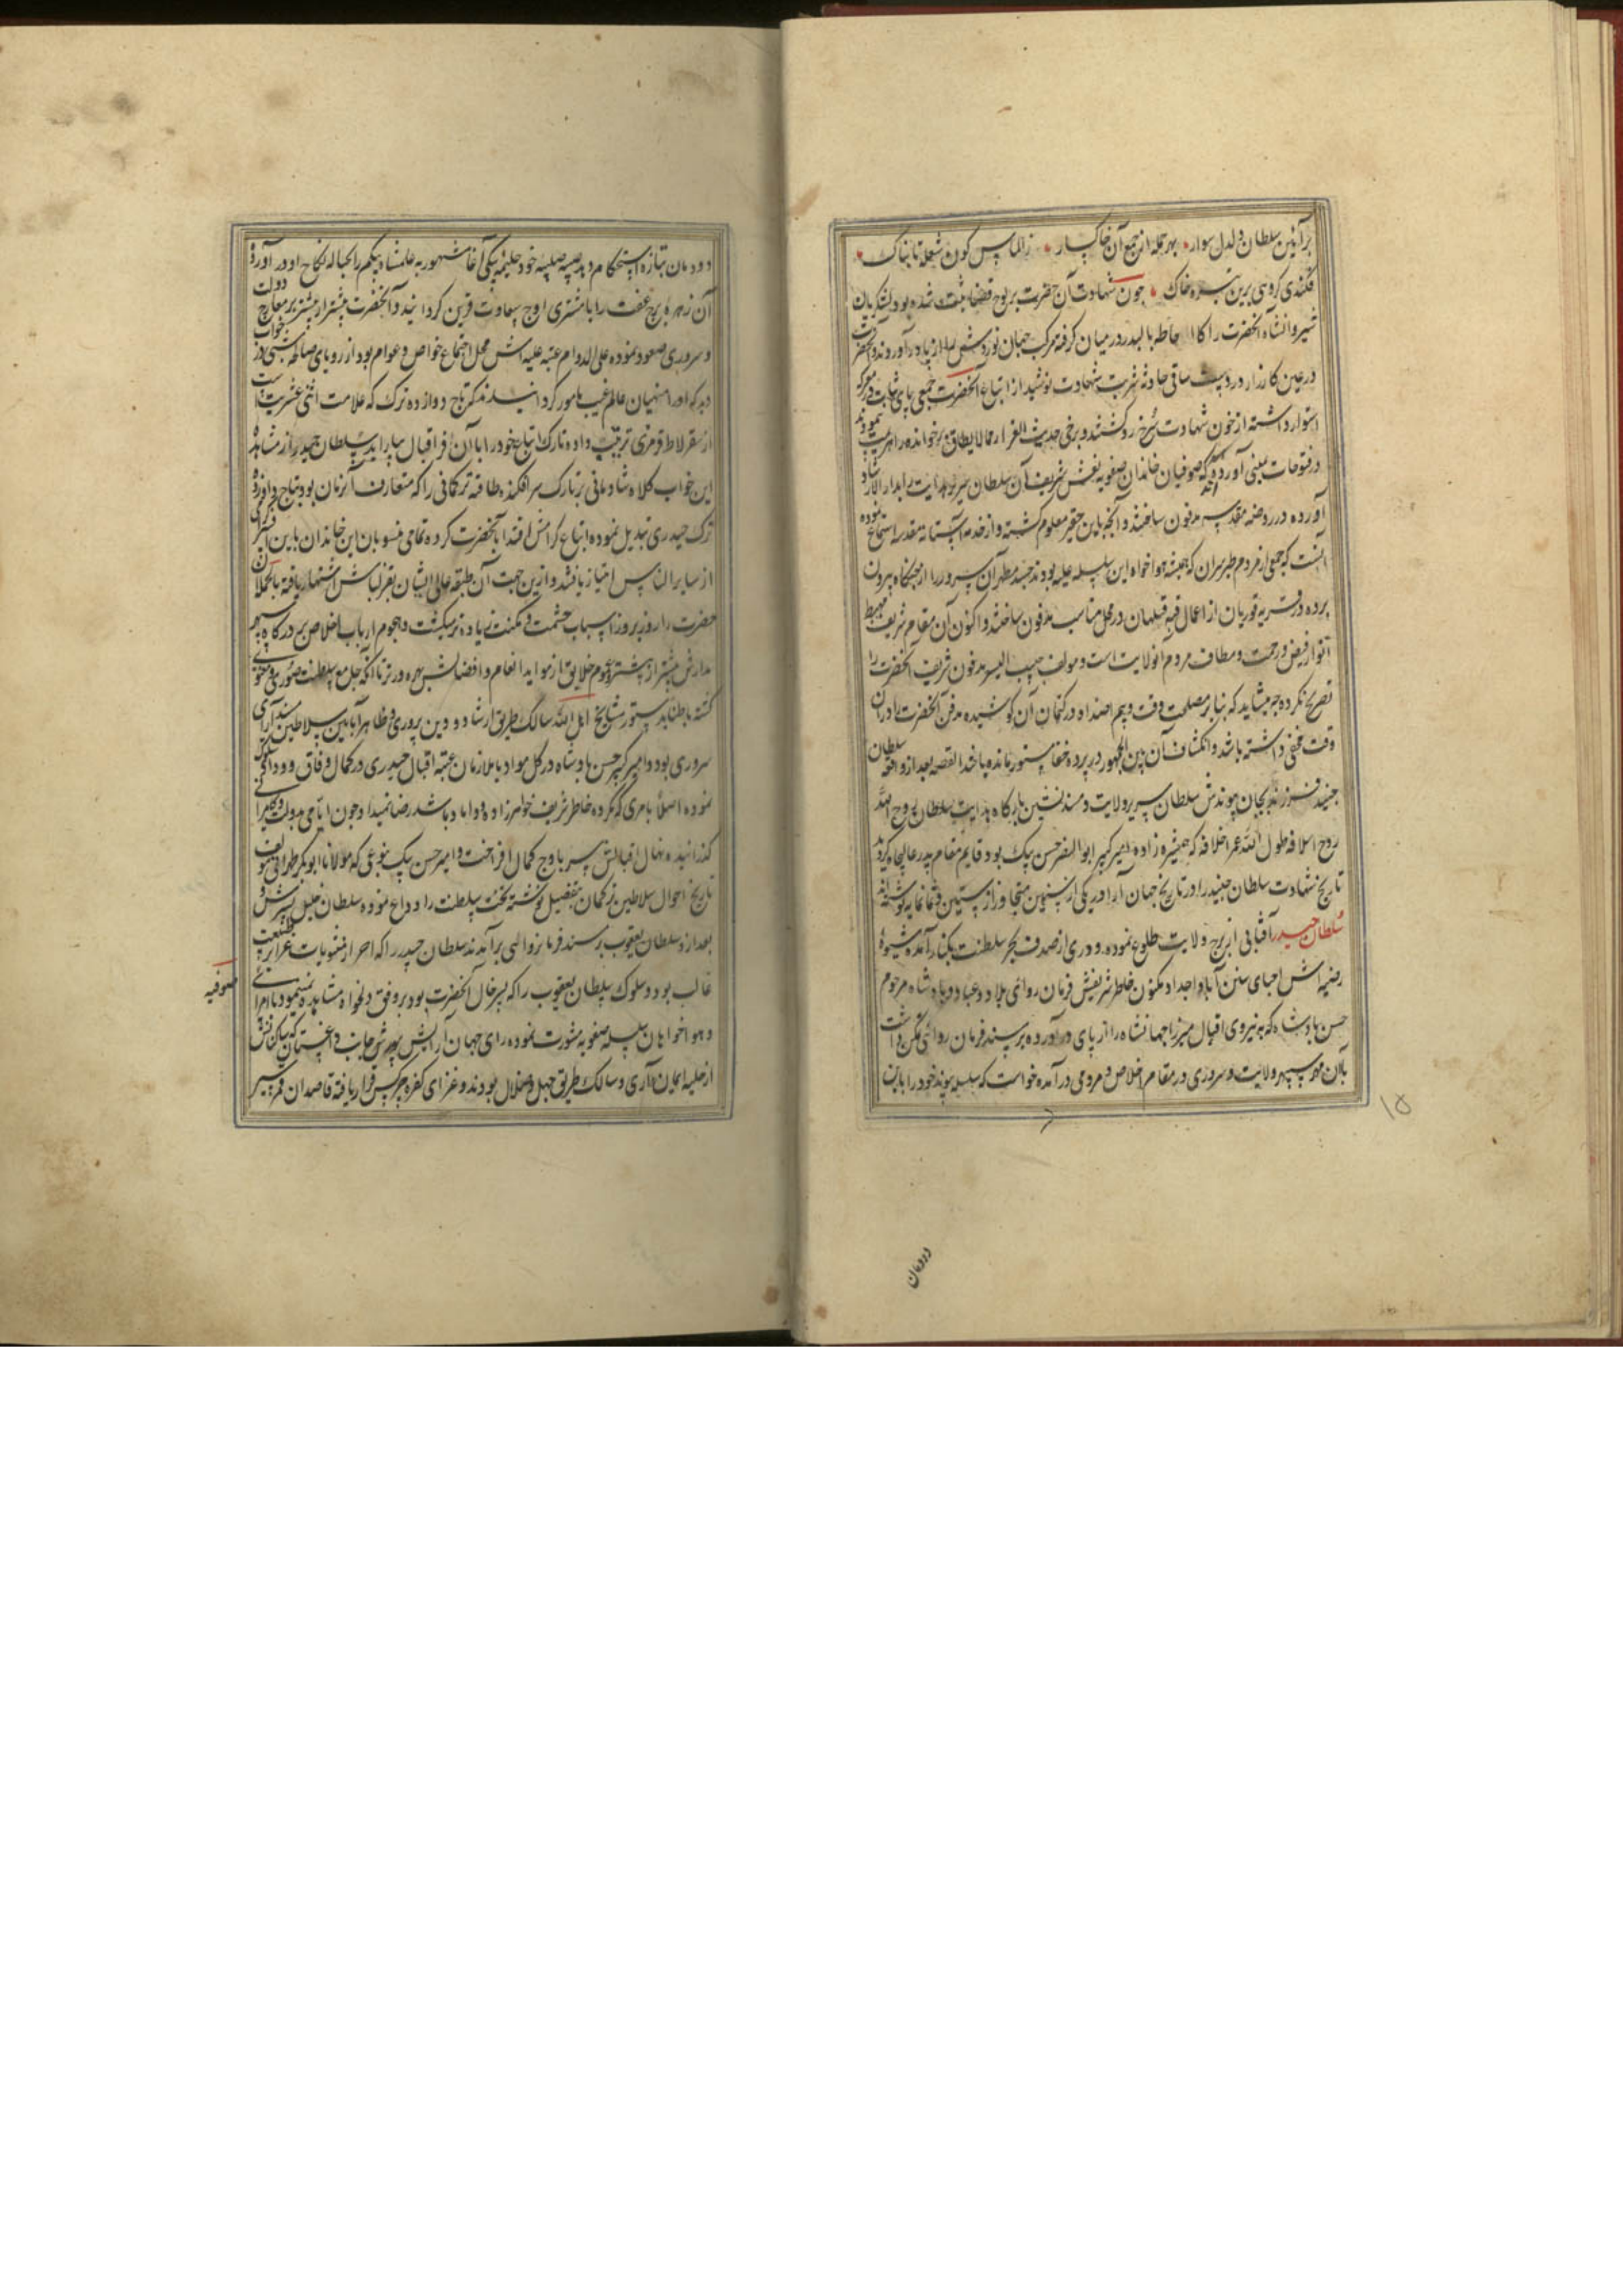 برآیین سلطان دلدل سوار بهر حمله از جمع آن خاکسار ز الماس گون شعله تابناک
فکندی گروهی برین تیره خاک چون شهادت آن حضرت بر لوح قضا ثبت شده بود لشکریان
شیروانشاه آنحضرت را کالاحاطه بالبدر در میان گرفته مرکب جهان نوردش را از پا درآوردند و آنحضرت
در عین کارزار در دست ساقی حادثه شربت شهادت نوشید از اتباع آنحضرت جمعی پای ثبات در معرکه
استوار داشته از خون شهادت سرخ رو گشتند و برخی حدیث الفرار مما لا یطاق برخوانده راه هزیمت پیمودند
در فتوحات یمینی آورده که صوفیان خاندان صفویه نعش شریف آن سلطان سریر هدایت بدار الارشاد
آورده در روضه مقدسه مدفون ساختند و آنچه باین حقیر معلوم گشته و از خدمه آستانه مقدسه استماع نموده
آنست که جمعی از مردم طبرسران که همیشه هواخواه این سلسله علیه بودند جسد مطهر آن سرور را از جنگگاه بیرون
برده در قریه قوریان از اعمال قبه قلهان در محل مناسب مدفون ساختند و اکنون آن مقام شریف مهبط
انوار فیض و رحمت و مطاف مردم آنولایت است و مولف حبیب السیر مدفن شریف آنحضرت را
تصریح نکرده چه میشاید که بنا بر مصلحت وقت و بیم اضداد در کتمان آن کوشیده مدفن آنحضرت را در آن
وقت مخفی داشته باشد و انکشاف آن بین الجمهور در پرده خفا مستور مانده باشد القصه بعد از واقعه سلطان
جنید فرزند بجان پیوندش سلطان سریر ولایت و مسندنشین بارگاه هدایت سلطان روح الله
روح اسلافه طول الله عمر اخلافه که همشیره زاده امیر کبیر ابوالنصر حسن بیک بود قایم مقام پدر عالیجاه گردید
تاریخ شهادت سلطان جنید را در تاریخ جهان آرا در یکی از سنین متجاوز از ستین و ثمانمایه نوشته اند
سلطان حیدر آفتابی از برج ولایت طلوع نموده و دری از صدف بحر سلطنت بکنار آمده شیوهٔ
رضیه اش احیای سنن آبا و اجداد و مکنون خاطر شریفش فرمان روائی بلاد و عباد و پادشاه مرحوم
حسن پادشاه که به نیروی اقبال میرزا جهانشاه را از پای درآورده بر مسند فرمان روائی تمکن داشت
با آن مهر سپهر ولایت و سروری در مقام اخلاص و مرومی درآمده خواست که سلسله پیوند خود را باین
۱۵
دودمان
دودمان بتازه استحکام دهد صبیه صلبیه خود حلیمه بیکی آغا مشهور به علمشاه بیگم را بحباله نکاح او درآورده
آن زهره برج عفت را با مشتری اوج سعادت قرین گردانید و آنحضرت بیشتر از پیشتر بر معارج دولت
و سروری صعود نموده علی الدوام عتبه علیه اش محل اجتماع خواص و عوام بود از رویای صالحه شبی در خواب
دید که او را منهیان عالم غیب مامور گردانیدند که تاج دوازده ترک که علامت اثنی عشریت است
از سقرلاط قرمزی ترتیب داده تارک اتباع خود را با آن افسر اقبال بیاراید سلطان حیدر از مشاهده
این خواب کلاه شادمانی بر تارک سر افکنده طاقیه ترکمانی را که متعارف آنزمان بود بتاج دوازده
ترک حیدری تبدیل نموده اتباع کرامش اقتدا بآنحضرت کرده تمامی منسوبان این خاندان باین افسر گرامی
از سایر الناس امتیاز یافتند و ازین جهت آن طبقه عالی الشان بقزلباش اشتهار یافته بالجمله آن
حضرت را روز بروز اسباب حشمت و مکنت زیاده تر میگشت و هجوم ارباب اخلاص بر درگاه سپهر
مدارش بیشتر از پیشتر و عموم خلایق از مواید انعام و افضالش بهره ورتر تا آنکه جامع سلطنت صوری و معنوی
گشته باطنا بدستور مشایخ اهل الله سالک طریق ارشاد و دین پروری و ظاهرا بآیین سلاطین مسند آرای
سروری بود و امیر کبیر حسن پادشاه در کل مواد با ملازمان عتبه اقبال حیدری در کمال وفاق و وداد سلوک
نموده اصلا بامری که مکروه خاطر شریف خواهرزاده و داماد باشد رضا نمیداد و چون ایامی بدولت و کامرانی
گذرانیده نهال اقبالش سر باوج کمال افراخت و امیر حسن بیک بنوعی که مولانا ابوبکر طهرانی مولف
تاریخ احوال سلاطین ترکمان بتفصیل نوشته تخت سلطنت را وداع نموده سلطان خلیل پسرش و
بعد از و سلطان یعقوب بر مسند فرمانروائی برآمدند سلطان حیدر را که احراز مثوبات غزا بر طبیعت
غالب بود و سلوک سلطان یعقوب را که پسر خال آنحضرت بود بر وفق دلخواه مشاهده نمینمود با امرای
صوفیه
و هواخواهان سلسله صفویه مشورت نموده رای جهان آرایش بیورش جانب داغستان که ساکنانش
از حلیه ایمان عاری و سالک طریق جهل و ضلال بودند و غزای کفره چرکس قرار یافته قاصدان قمرسیر